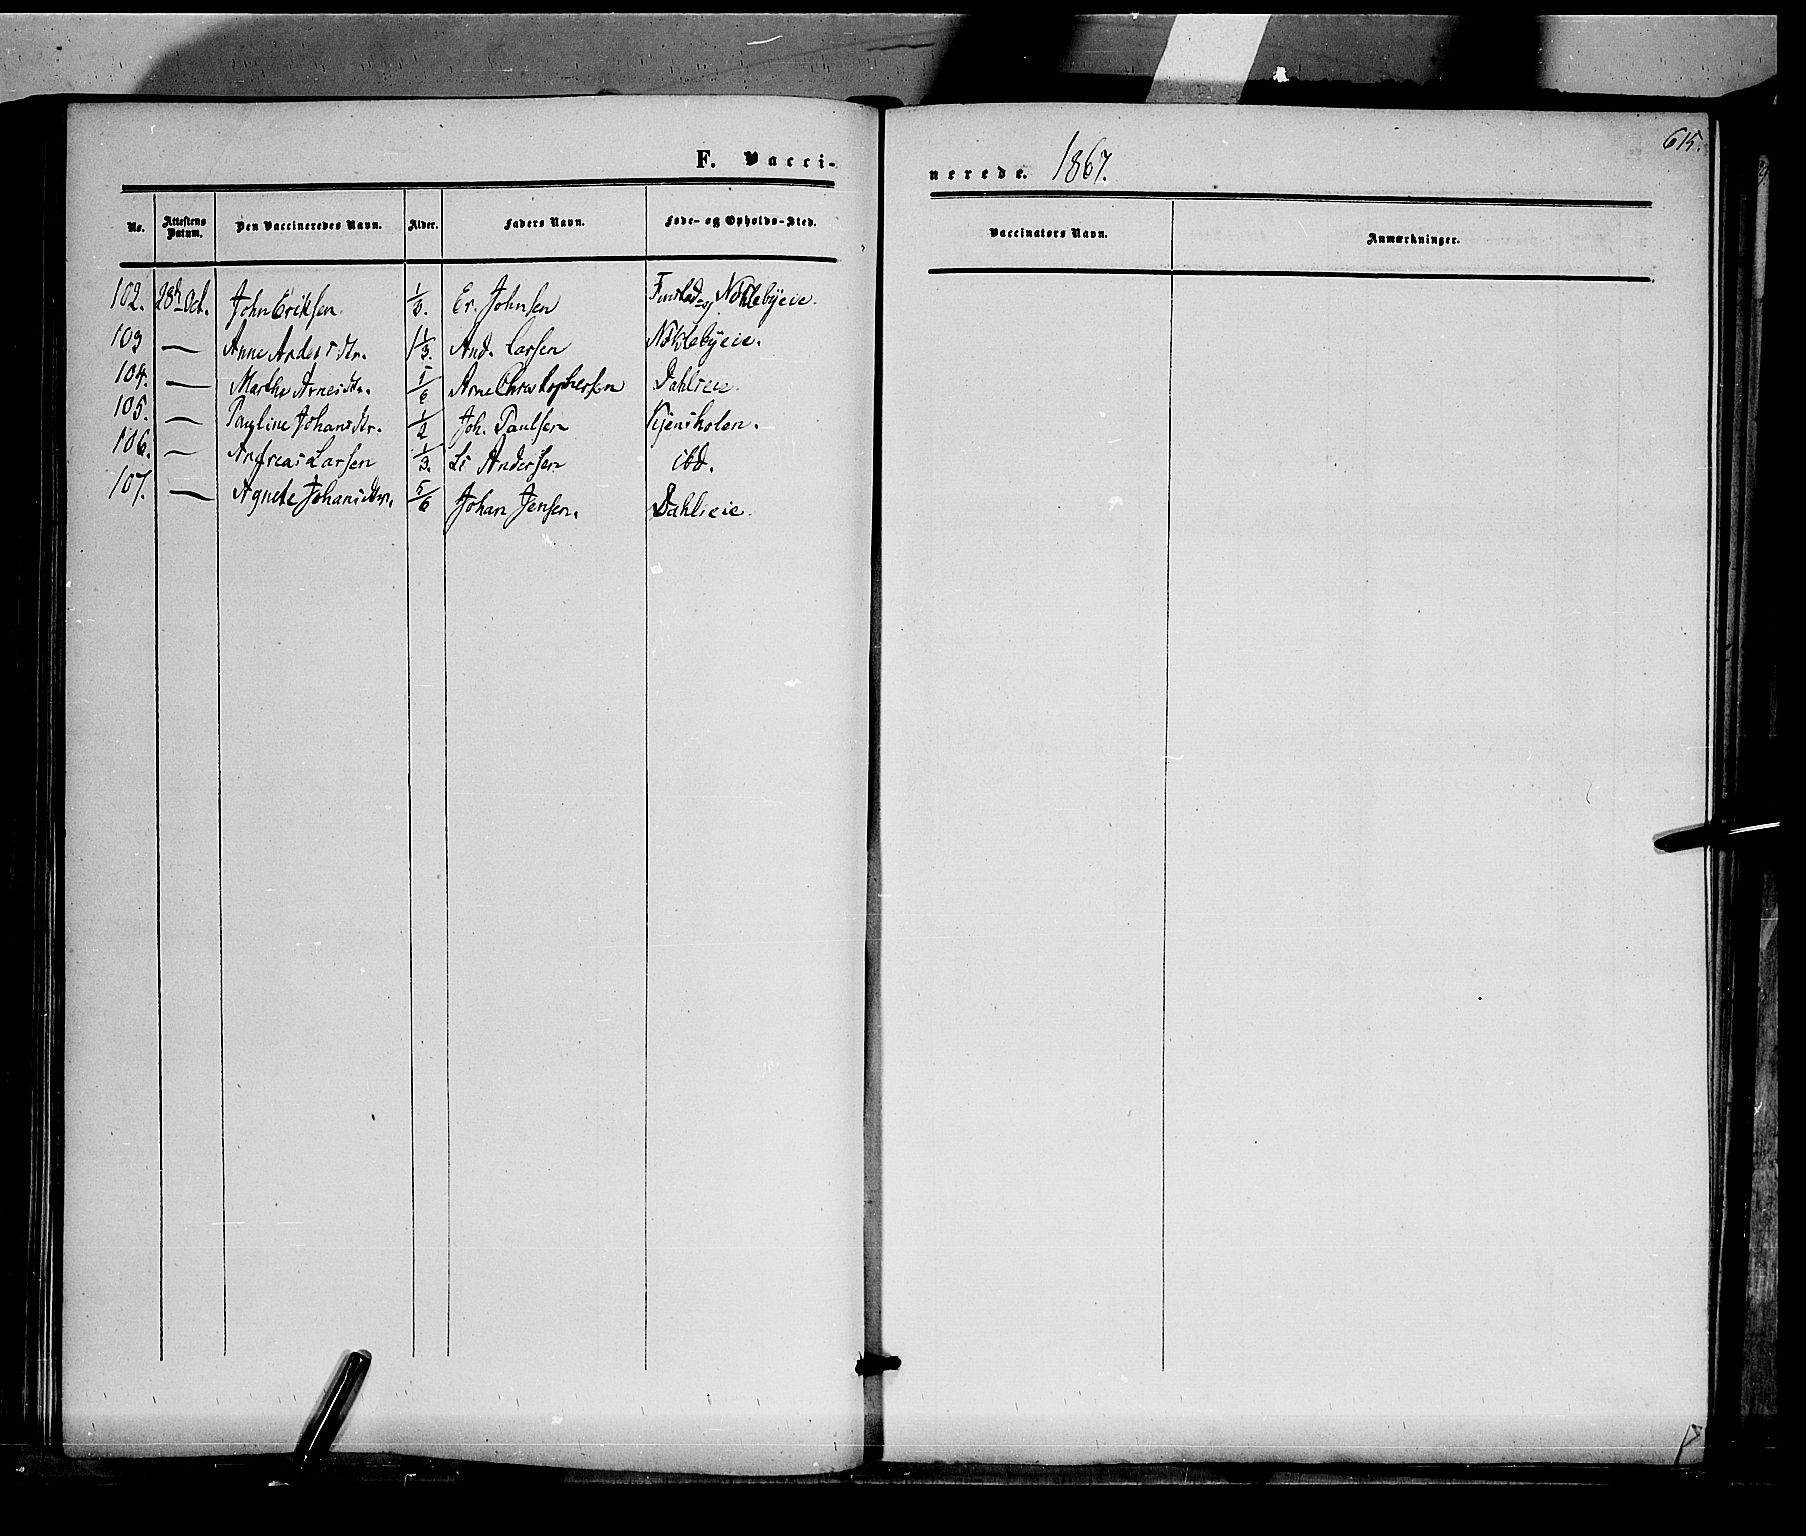 F. Vacci-
nerede. 1867.
615.
No. Attestens Datum. Den Vaccineredes Navn. Alder. Faders Navn. Føde- og Opholds-Sted.
Vaccinators Navn. Anmærkninger.
102. 28de Oct. John Eriksen 1/3. Er. Johnsen Nöklebÿeie.
103 — Anne Andersdtr. 1 1/3. And. Larsen Nöklebÿeie.
104. — Marthe Arnesdtr. 1/6 Arne Christophersen Dahlseie.
105. — Pauline Johansdtr. 1/2 Joh. Paulsen
106. — Andreas Larsen 1/3. Ls Andersen ibd.
107. — Agnete Johansdtr. 5/6 Johan Jensen. Dahlseie.